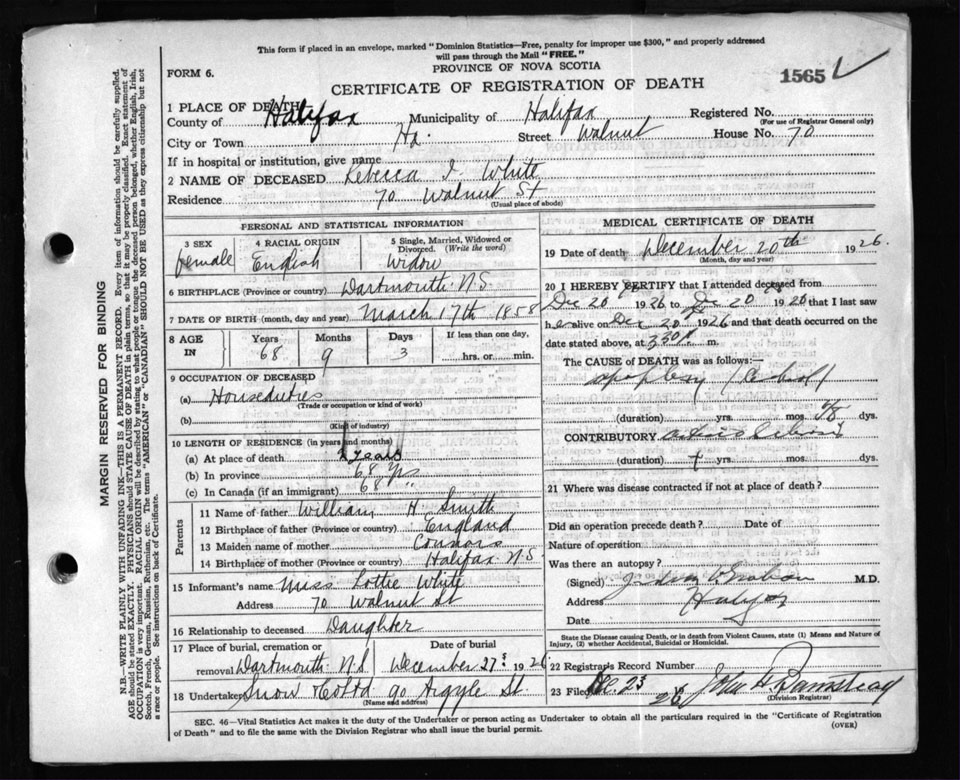 This form if placed in an envelope, marked "Dominion Statistics—Free, penalty for improper use $300," and properly addressed
will pass through the Mail "FREE."
PROVINCE OF NOVA SCOTIA
FORM 6.
1565
CERTIFICATE OF REGISTRATION OF DEATH
1 PLACE OF DEATH
County of Halifax Municipality of Halifax Registered No.
(For use of Registrar General only)
City or Town Street Walnut House No. 70
If in hospital or institution, give name
2 NAME OF DECEASED Rebecca I. White
Residence 70 Walnut St
(Usual place of abode)
PERSONAL AND STATISTICAL INFORMATION
3 SEX 4 RACIAL ORIGIN 5 Single, Married, Widowed or
Divorced. (Write the word)
female English Widow
6 BIRTHPLACE (Province or country) Dartmouth N.S.
7 DATE OF BIRTH (month, day and year) March 17th 1858
8 AGE IN Years Months Days If less than one day,
68 9 3 hrs. or min.
9 OCCUPATION OF DECEASED
(a) Houseduties
(Trade or occupation or kind of work)
(b)
(Kind of industry)
10 LENGTH OF RESIDENCE (in years and months)
(a) At place of death years
(b) In province 68 yrs
(c) In Canada (if an immigrant) 68 "
Parents
11 Name of father William H. Smith
12 Birthplace of father (Province or country) England
13 Maiden name of mother Connors
14 Birthplace of mother (Province or country) Halifax N.S.
15 Informant's name Miss Lottie White
Address 70 Walnut St
16 Relationship to deceased Daughter
17 Place of burial, cremation or Date of burial
removal Dartmouth N.S December 1926
18 Undertaker Snow & Co Ltd 90 Argyle St.
(Name and address)
MEDICAL CERTIFICATE OF DEATH
19 Date of death December 20th 1926.
(Month, day and year)
20 I HEREBY CERTIFY that I attended deceased from
Dec 20 1926 to Dec 20 1920 that I last saw
her alive on Dec 20 1926 and that death occurred on
date stated above, at m.
The CAUSE of DEATH was as follows:
(duration) yrs. mos. dys.
CONTRIBUTORY
(duration) yrs. mos. dys.
21 Where was disease contracted if not at place of death?
Did an operation precede death? Date of
Nature of operation
Was there an autopsy?
(Signed) M.D.
Address Halifax
Date
State the Disease causing Death, or in death from Violent Causes, state (1) Means and Nature of
Injury, (2) whether Accidental, Suicidal or Homicidal.
22 Registrar's Record Number
23 Filed Dec. 23 1926 John H
(Division Registrar)
SEC. 46—Vital Statistics Act makes it the duty of the Undertaker or person acting as Undertaker to obtain all the particulars required in the "Certificate of Registration
of Death" and to file the same with the Division Registrar who shall issue the burial permit.
(OVER)
MARGIN RESERVED FOR BINDING
N.B.—WRITE PLAINLY WITH UNFADING INK—THIS IS A PERMANENT RECORD. Every item of information should be carefully supplied.
AGE should be stated EXACTLY. PHYSICIANS should STATE CAUSE OF DEATH in plain terms, so that it may be properly classified. Exact statement of
OCCUPATION is very important. RACIAL ORIGIN will be described by stating to what people or tongue the deceased person belonged, whether English, Irish,
Scotch, French, German, Russian, Ruthenian, etc. The terms "AMERICAN" or "CANADIAN" SHOULD NOT BE USED as they express citizenship but not
a race or people. See instructions on back of Certificate.